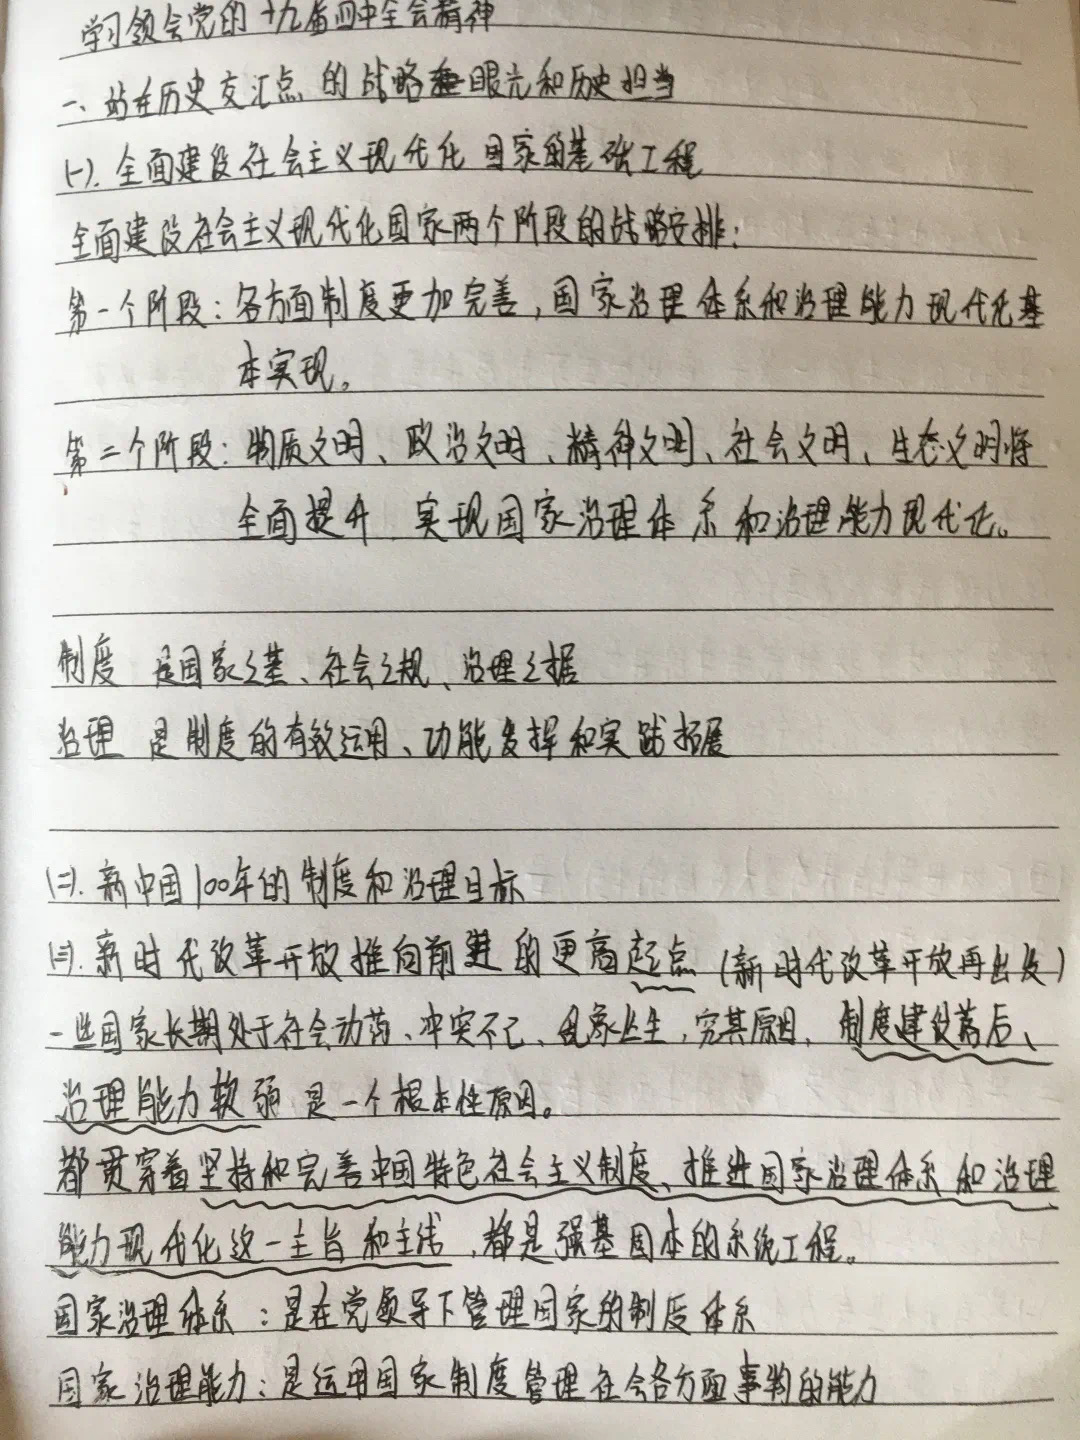 学习领会党的十九届四中全会精神
一、站在历史交汇点的战略眼光和历史担当
(一).全面建设社会主义现代化国家的基础工程
全面建设社会主义现代化国家两个阶段的战略安排:
第一个阶段:各方面制度更加完善,国家治理体系和治理能力现代化基
本实现。
第二个阶段:物质文明、政治文明、精神文明、社会文明、生态文明将
全面提升 实现国家治理体系和治理能力现代化。
制度 是国家之基、社会之规、治理之据
治理 是制度的有效运用、功能发挥和实践拓展
(二).新中国100年的制度和治理目标
(三).新时代改革开放推向前进的更高起点(新时代改革开放再出发)
一些国家长期处于社会动荡、冲突不已、乱象丛生,究其原因,制度建设落后、
治理能力软弱是一个根本性原因。
都贯穿着坚持和完善中国特色社会主义制度、推进国家治理体系和治理
能力现代化这一主旨和主线,都是强基固本的系统工程。
国家治理体系:是在党领导下管理国家的制度体系
国家治理能力:是运用国家制度管理社会各方面事物的能力